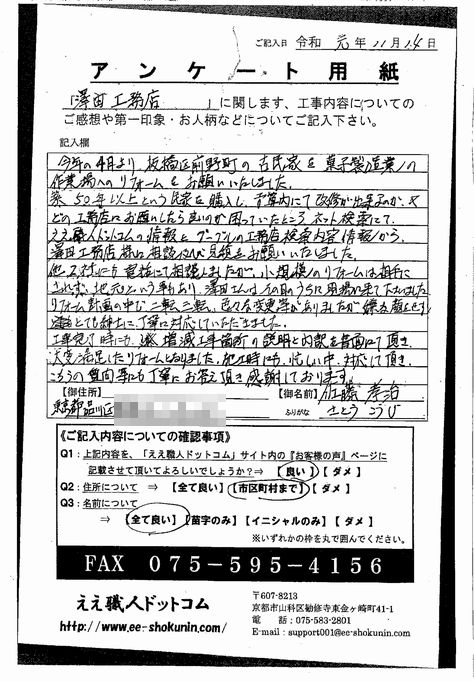 ご記入日 令和 元年 11月14日
アンケート用紙
「澤田工務店」に関します、工事内容についての
ご感想や第一印象・お人柄などについてご記入下さい。
記入欄
今年の4月より、板橋区前野町の古民家を菓子製造業の
作業場へのリフォームをお願いいたしました。
築50年以上という民家を購入し、予算内にて改修が出来るのか、又
どの工務店にお願いしたら良いのか困っていたところ ネット検索にて、
ええ職人ドットコムの情報とグーグルの工務店検索内容情報から、
澤田工務店様に相談に見積をお願いいたしました。
他2社にも電話にて相談しましたが、小規模のリフォームは相手に
されず、地元という事もあり、澤田さんはその日のうちに現場に来て下さいました。
リフォーム計画の中で二転、三転、色々な変更等がありましたが嫌な顔せず
とても紳士に丁寧に対応していただきました。
工事完了時にも、増減工事箇所の説明と内訳を書面にて頂き、
大変満足したリフォームとなりました。施工時にも、忙しい中、対応して頂き、
こちらの質問等にも丁寧にお答え頂き感謝しております。
【御住所】
東京都品川区
【御名前】佐藤 孝治
ふりがな さとう こうじ
《ご記入内容についての確認事項》
Q1：上記内容を、「ええ職人ドットコム」サイト内の『お客様の声』ページに
記載させて頂いてよろしいでしょうか？⇒ 【 良い 】 【 ダメ 】
Q2：住所について ⇒ 【全て良い】【市区町村まで】【 ダメ 】
Q3：名前について
⇒ 【全て良い】【苗字のみ】【イニシャルのみ】【 ダメ 】
※いずれかの枠を丸で囲んでください。
FAX 075-595-4156
ええ職人ドットコム
http://www.ee-shokunin.com/
〒607-8213
京都市山科区勧修寺東金ヶ崎町41-1
電 話：075-583-2801
E-mail：support001@ee-shokunin.com